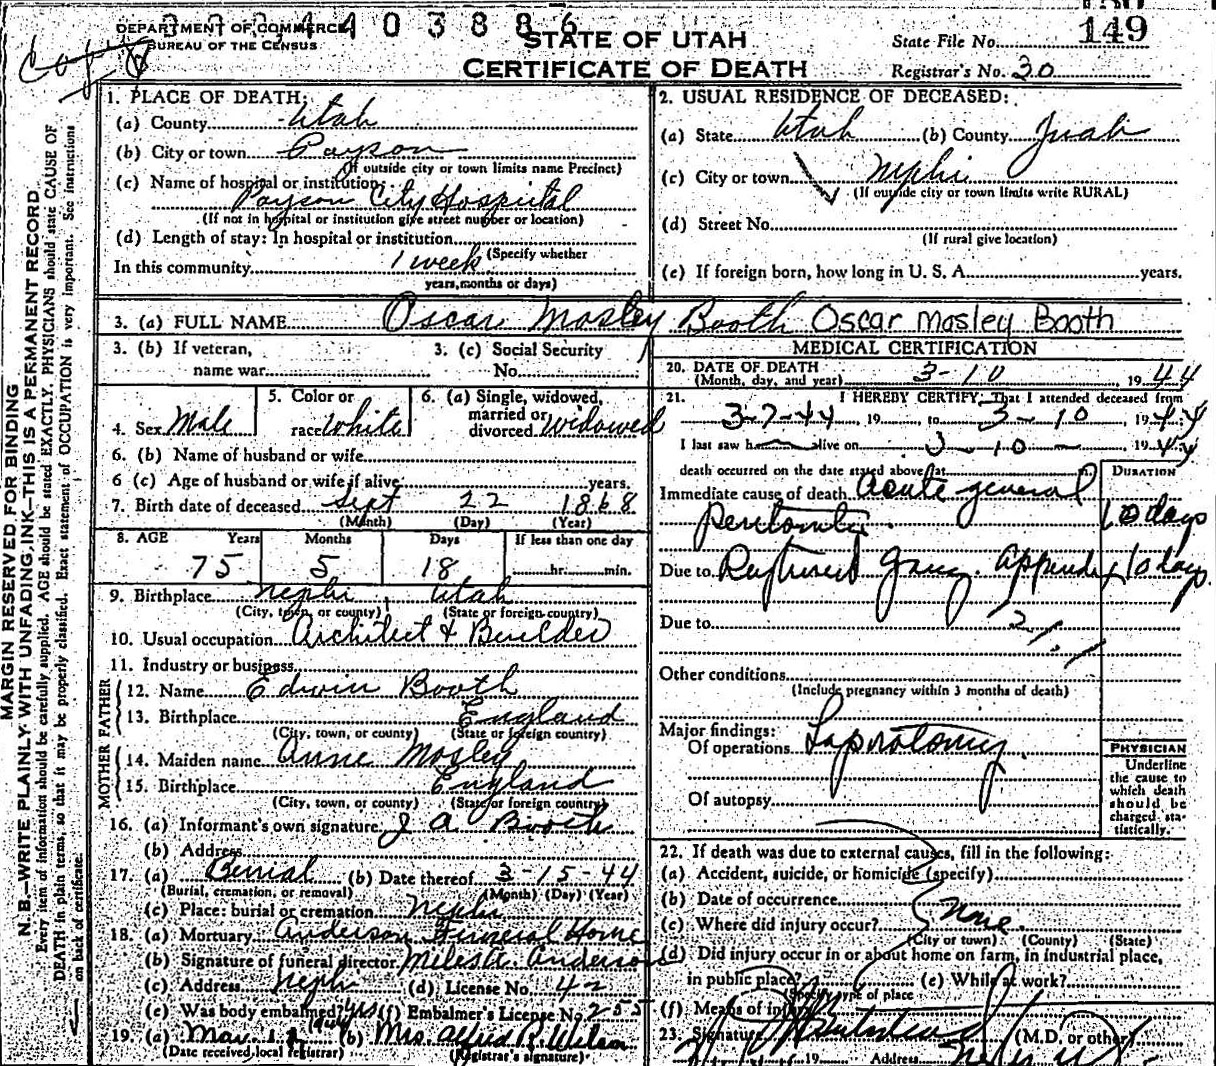 DEPARTMENT OF COMMERCE
BUREAU OF THE CENSUS
STATE OF UTAH
CERTIFICATE OF DEATH
149
State File No.
Registrar's No. 30
MARGIN RESERVED FOR BINDING
N.B.—WRITE PLAINLY WITH UNFADING INK—THIS IS A PERMANENT RECORD
Every item of information should be carefully supplied. AGE should be stated EXACTLY. PHYSICIANS should state CAUSE OF
DEATH in plain terms, so that it may be properly classified. Exact statement of OCCUPATION is very important. See instructions
on back of certificate.
1. PLACE OF DEATH:
(a) County Utah
(b) City or town Payson
(If outside city or town limits name Precinct)
(c) Name of hospital or institution
Payson City Hospital
(If not in hospital or institution give street number or location)
(d) Length of stay: In hospital or institution
(Specify whether
In this community 1 week
years, months or days)
2. USUAL RESIDENCE OF DECEASED:
(a) State Utah (b) County Juab
(c) City or town Nephi
(If outside city or town limits write RURAL)
(d) Street No.
(If rural give location)
(e) If foreign born, how long in U. S. A. years.
3. (a) FULL NAME Oscar Mosley Booth Oscar Mosley Booth
3. (b) If veteran,
name war
3. (c) Social Security
No.
4. Sex Male
5. Color or
race White
6. (a) Single, widowed,
married or
divorced widowed
6. (b) Name of husband or wife
6 (c) Age of husband or wife if alive years.
7. Birth date of deceased Sept 22 1868
(Month) (Day) (Year)
8. AGE Years Months Days If less than one day
75 5 18 hr. min.
9. Birthplace Nephi Utah
(City, town, or county) (State or foreign country)
10. Usual occupation Architect & Builder
11. Industry or business
FATHER
12. Name Edwin Booth
13. Birthplace England
(City, town, or county) (State or foreign country)
MOTHER
14. Maiden name Anne Mosley
15. Birthplace England
(City, town, or county) (State or foreign country)
16. (a) Informant's own signature J A Booth
(b) Address
17. (a) Burial (b) Date thereof 3-15-44
(Burial, cremation, or removal) (Month) (Day) (Year)
(c) Place: burial or cremation Nephi
18. (a) Mortuary Anderson Funeral Home
(b) Signature of funeral director Anderson
(c) Address Nephi (d) License No. 42
(e) Was body embalmed? yes (f) Embalmer's License No. 255
19. (a) Mar. 1944 (b) Mrs. Alfred R. Wilson
(Date received local registrar) (Registrar's signature)
MEDICAL CERTIFICATION
20. DATE OF DEATH
(Month, day, and year) 3-10, 1944
21. I HEREBY CERTIFY, That I attended deceased from
3-7-44, 19 , to 3-10, 1944
I last saw h alive on 3-10-1944
death occurred on the date stated above at m.
DURATION
Immediate cause of death Acute general
peritonitis. 10 days
Due to Ruptured gang. appendix 10 days
Due to
Other conditions
(Include pregnancy within 3 months of death)
Major findings:
Of operations Laparotomy.
Of autopsy
PHYSICIAN
Underline
the cause to
which death
should be
charged sta-
tistically.
22. If death was due to external causes, fill in the following:
(a) Accident, suicide, or homicide (specify)
(b) Date of occurrence
(c) Where did injury occur? None.
(City or town) (County) (State)
(d) Did injury occur in or about home on farm, in industrial place,
in public place? (e) While at work?
(Specify type of place
(f) Means of injury
23. Signature (M.D. or other)
19 Address